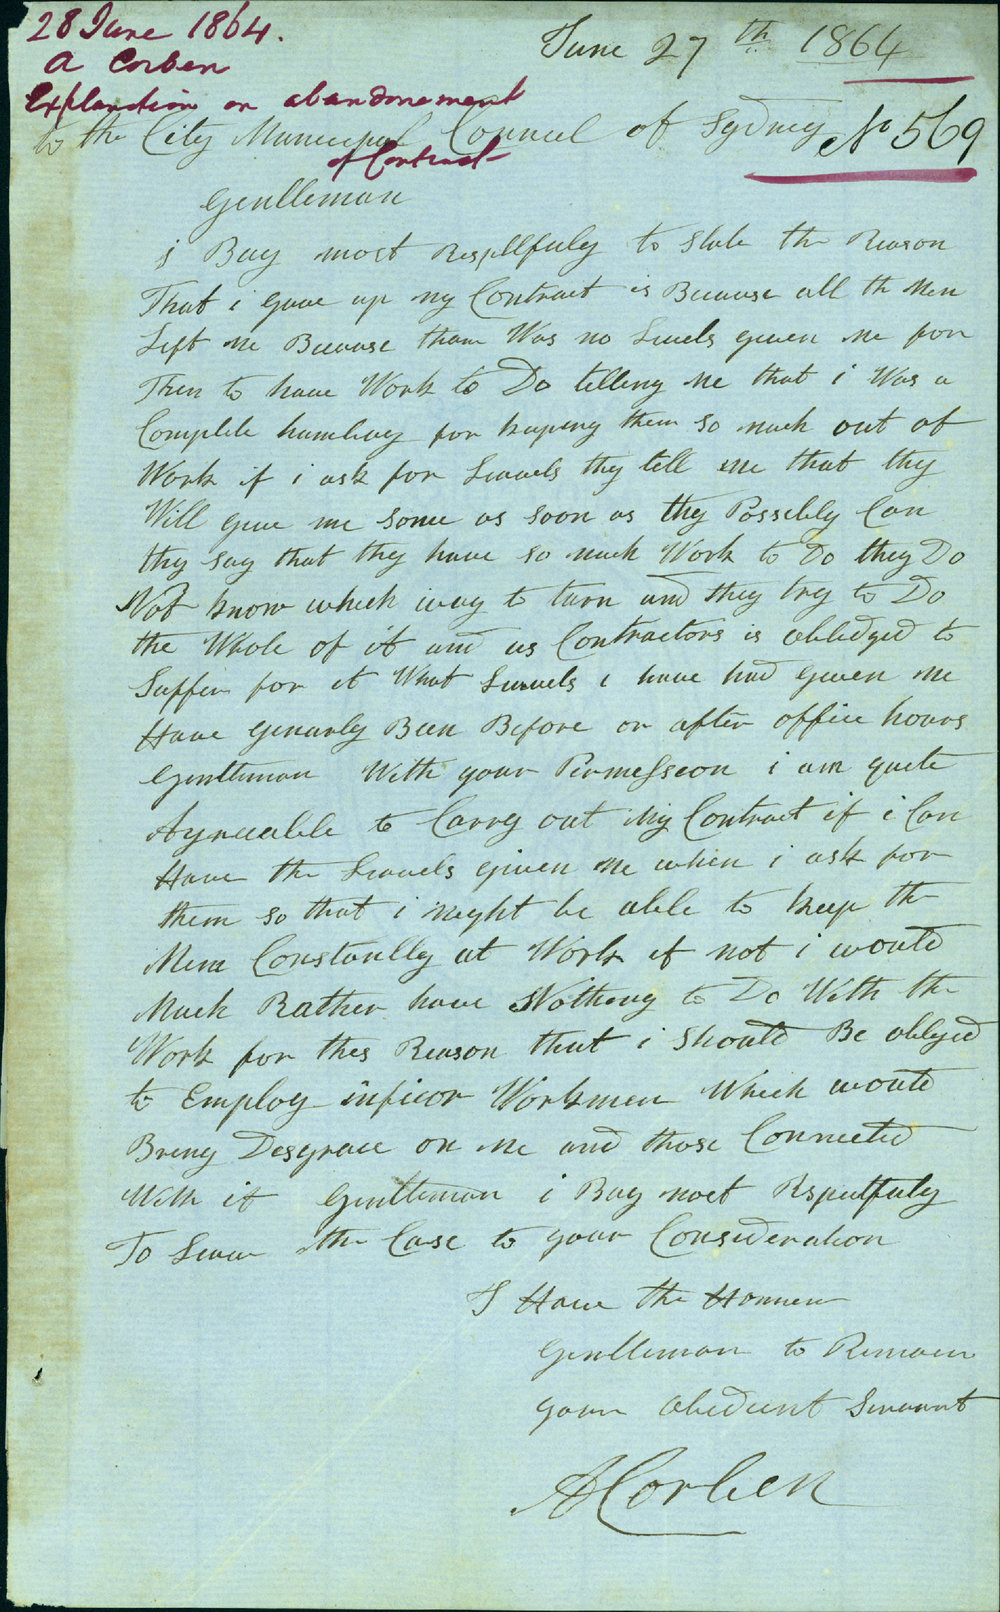 28 June 1864.
A Corben
Explanation on abandonement
of Contract
June 27th 1864
No 569
to the City Municipal Council of Sydney
Gentleman
i Bag most Respltfuly to State the Reason
That i gave up my Contract is Because all the Men
Left me Because tham Was no Levels given me for
Them to have Work to Do telling me that i Was a
Complete humbug for keeping them so much out of
Work if i ask for Levels they tell me that they
Will give me some as soon as they Possebly Can
they say that they have so much Work to Do they Do
Not know which way to turn and they try to Do
the Whole of it and us Contractors is abledged to
Suffer for it What Levels i have had given me
Have genarly Been Before or after office hours
Gentleman With your Permession i am quite
Agreeable to Carry out My Contract if i Can
Have the Levels given me when i ask for
them so that i might be able to keep the
Men Constantly at Work if not i would
Much Rather have Nothing to Do With the
Work for this Reason that i should Be obliged
to Employ inficor Workmen Which would
Bring Desgrace on me and those Connected
With it Gentleman i Bag most Respectfuly
To Leave the Case to your Consideration
I Have the Honner
Gentleman to Remain
your Obedient Servant
A Corben